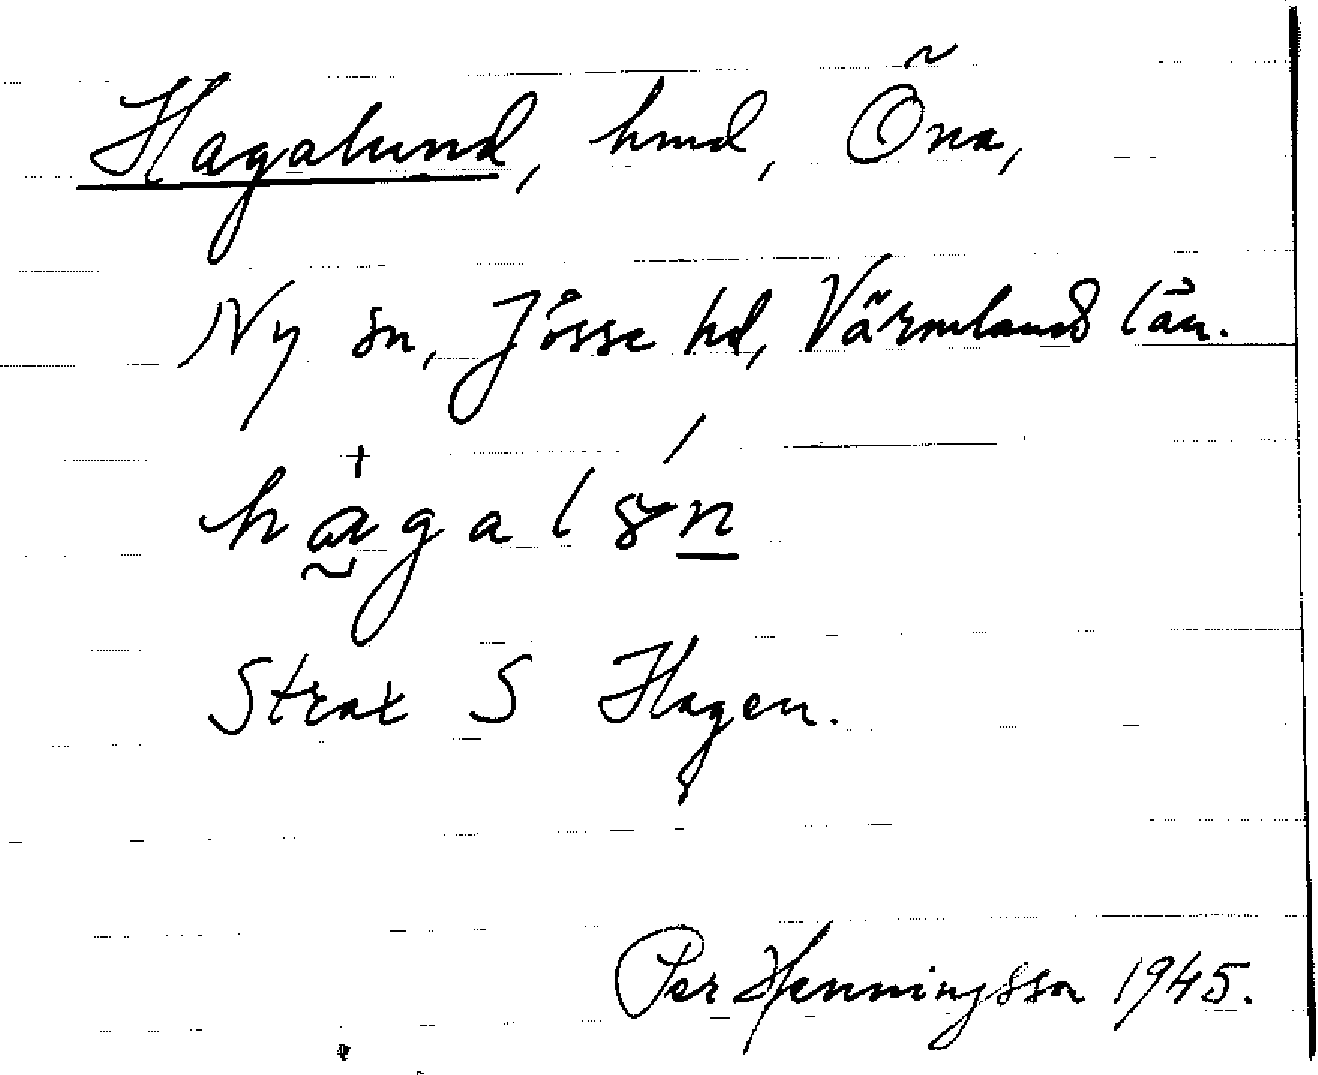 Hagalund, hmd, Öna,
Ny sn, Jösse hd, Värmlands län.
Strax S Hagen.
Per Henningsson 1945.